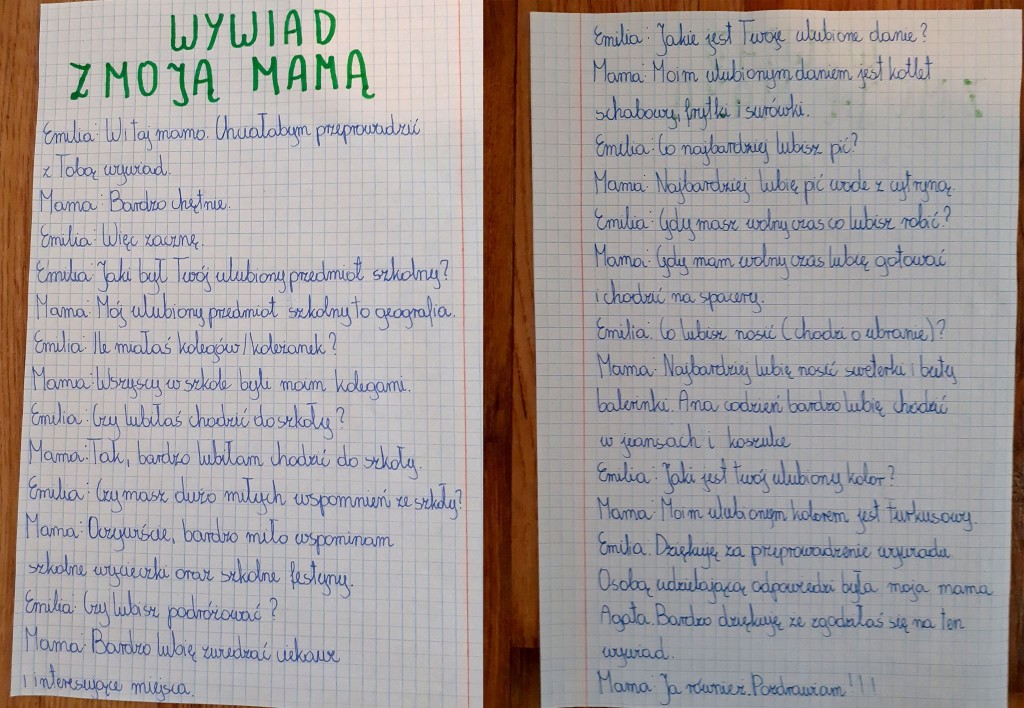 WYWIAD
Z MOJĄ MAMĄ
Emilia: Witaj mamo. Chciałabym przeprowadzić
z Tobą wywiad.
Mama: Bardzo chętnie.
Emilia: Więc zacznę.
Emilia: Jaki był Twój ulubiony przedmiot szkolny?
Mama: Mój ulubiony przedmiot szkolny to geografia.
Emilia: Ile miałaś kolegów/koleżanek?
Mama: Wszyscy w szkole byli moim kolegami.
Emilia: Czy lubiłaś chodzić do szkoły?
Mama: Tak, bardzo lubiłam chodzić do szkoły.
Emilia: Czy masz dużo miłych wspomnień ze szkoły?
Mama: Oczywiście, bardzo miło wspominam
szkolne wycieczki oraz szkolne festyny.
Emilia: Czy lubisz podróżować?
Mama: Bardzo lubię zwiedzać ciekawe
i interesujące miejsca.
Emilia: Jakie jest Twoje ulubione danie?
Mama: Moim ulubionym daniem jest kotlet
schabowy, frytki i surówki.
Emilia: Co najbardziej lubisz pić?
Mama: Najbardziej lubię pić wodę z cytryną.
Emilia: Gdy masz wolny czas co lubisz robić?
Mama: Gdy mam wolny czas lubię gotować
i chodzić na spacery.
Emilia: Co lubisz nosić (chodzi o ubranie)?
Mama: Najbardziej lubię nosić sweterki i buty
balerinki. A na codzień bardzo lubię chodzić
w jeansach i koszulce
Emilia: Jaki jest twój ulubiony kolor?
Mama: Moim ulubionym kolorem jest turkusowy.
Emilia: Dziękuję za przeprowadzenie wywiadu.
Osobą udzielającą odpowiedzi była moja mama
Agata. Bardzo dziękuję ze zgodziłaś się na ten
wywiad.
Mama: Ja również. Pozdrawiam!!!